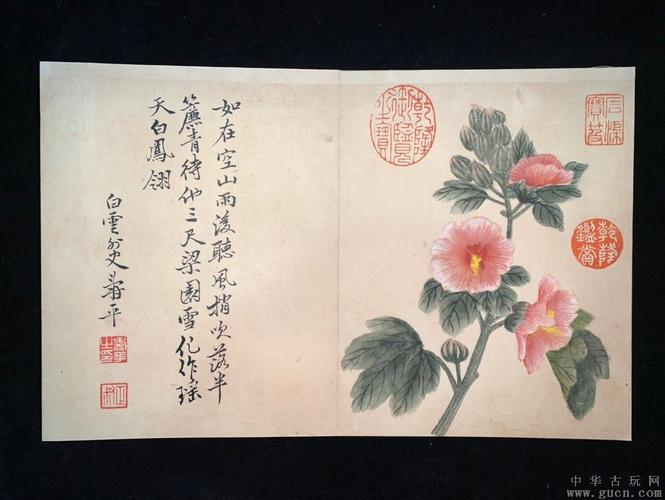 如在空山雨後聽風梢吹落半
簾青待他三尺梁園雪化作瑤
天白鳳翎
白雲外史壽平
乾隆御覽之寶
石渠寶笈
乾隆鑑賞
中华古玩网
www.gucn.com